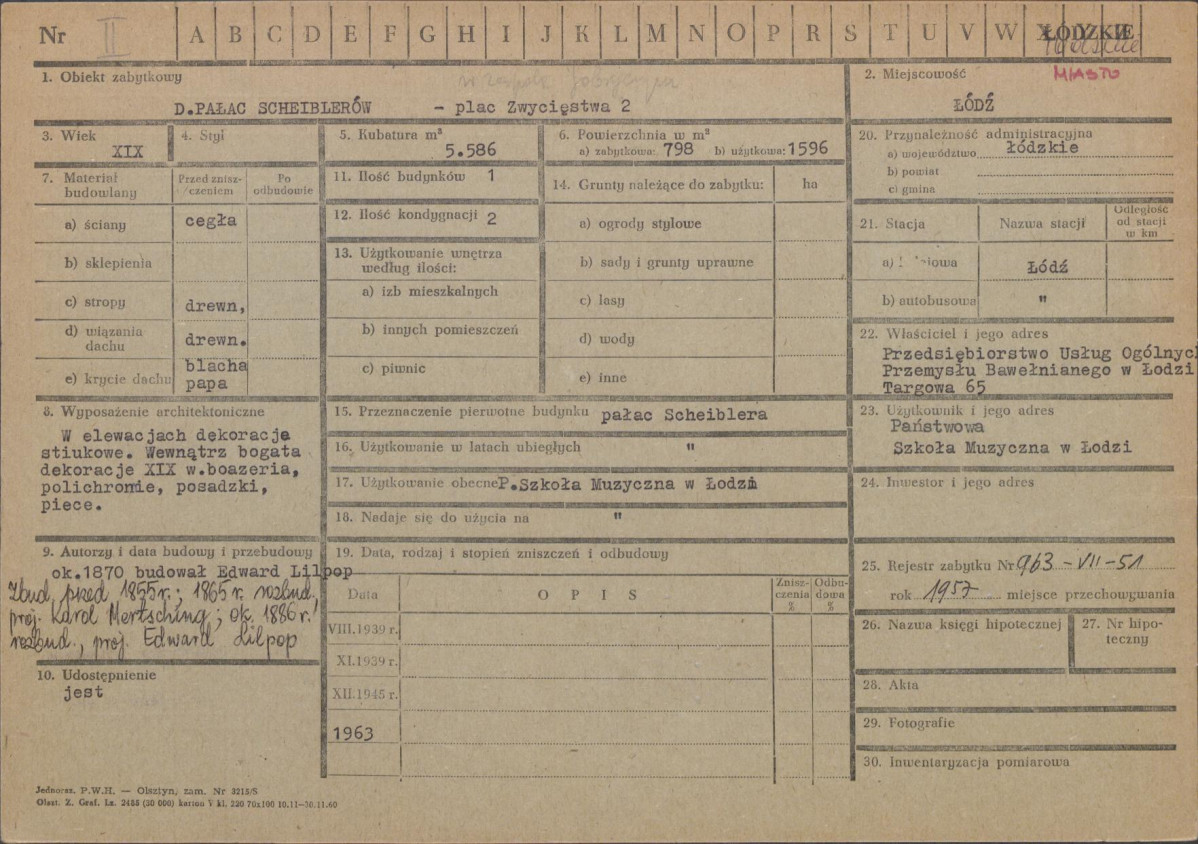 Nr II A B C D E F G H I J K L M N O P R S T U V W
ŁÓDZKIE
MIASTO
1. Obiekt zabytkowy
w zespole fabrycznym
D.PAŁAC SCHEIBLERÓW - plac Zwycięstwa 2
2. Miejscowość
ŁÓDŹ
3. Wiek
XIX
4. Styl
5. Kubatura m³
5.586
6. Powierzchnia w m²
a) zabytkowa: 798 b) użytkowa: 1596
7. Materiał budowlany
Przed znisz-/czeniem
Po odbudowie
a) ściany cegła
b) sklepienia
c) stropy drewn,
d) wiązania dachu drewn.
e) krycie dachu blacha papa
8. Wyposażenie architektoniczne
W elewacjach dekoracje
stiukowe. Wewnątrz bogata
dekoracje XIX w.boazeria,
polichromie, posadzki,
piece.
9. Autorzy i data budowy i przebudowy
ok.1870 budował Edward Lilpop
Zbud. przed 1855 r.; 1865 r. rozbud.
proj. Karol Mertsching; ok. 1886 r.
rozbud., proj. Edward Lilpop
10. Udostępnienie
jest
11. Ilość budynków 1
12. Ilość kondygnacji 2
13. Użytkowanie wnętrza
według ilości:
a) izb mieszkalnych
b) innych pomieszczeń
c) piwnic
14. Grunty należące do zabytku: ha
a) ogrody stylowe
b) sady i grunty uprawne
c) lasy
d) wody
e) inne
15. Przeznaczenie pierwotne budynku pałac Scheiblera
16. Użytkowanie w latach ubiegłych "
17. Użytkowanie obecne P.Szkoła Muzyczna w Łodzi
18. Nadaje się do użycia na "
19. Data, rodzaj i stopień zniszczeń i odbudowy
Data
O P I S
Znisz-czenia %
Odbu-dowa %
VIII.1939 r.
XI.1939 r.
XII.1945 r.
1963
20. Przynależność administracyjna
a) województwo łódzkie
b) powiat
c) gmina
21. Stacja
Nazwa stacji
Odległość od stacji w km
a) Łódź
b) autobusowa "
22. Właściciel i jego adres
Przedsiębiorstwo Usług Ogólnyc
Przemysłu Bawełnianego w Łodzi
Targowa 65
23. Użytkownik i jego adres
Państwowa
Szkoła Muzyczna w Łodzi
24. Inwestor i jego adres
25. Rejestr zabytku Nr 963-VII-51
rok 1957 miejsce przechowywania
26. Nazwa księgi hipotecznej
27. Nr hipo-teczny
28. Akta
29. Fotografie
30. Inwentaryzacja pomiarowa
Jednoraz. P.W.H. — Olsztyn, zam. Nr 3215/S
Olszt. Z. Graf. Lz. 2455 (30 000) karton V kl. 220 70x100 10.11—30.11.60